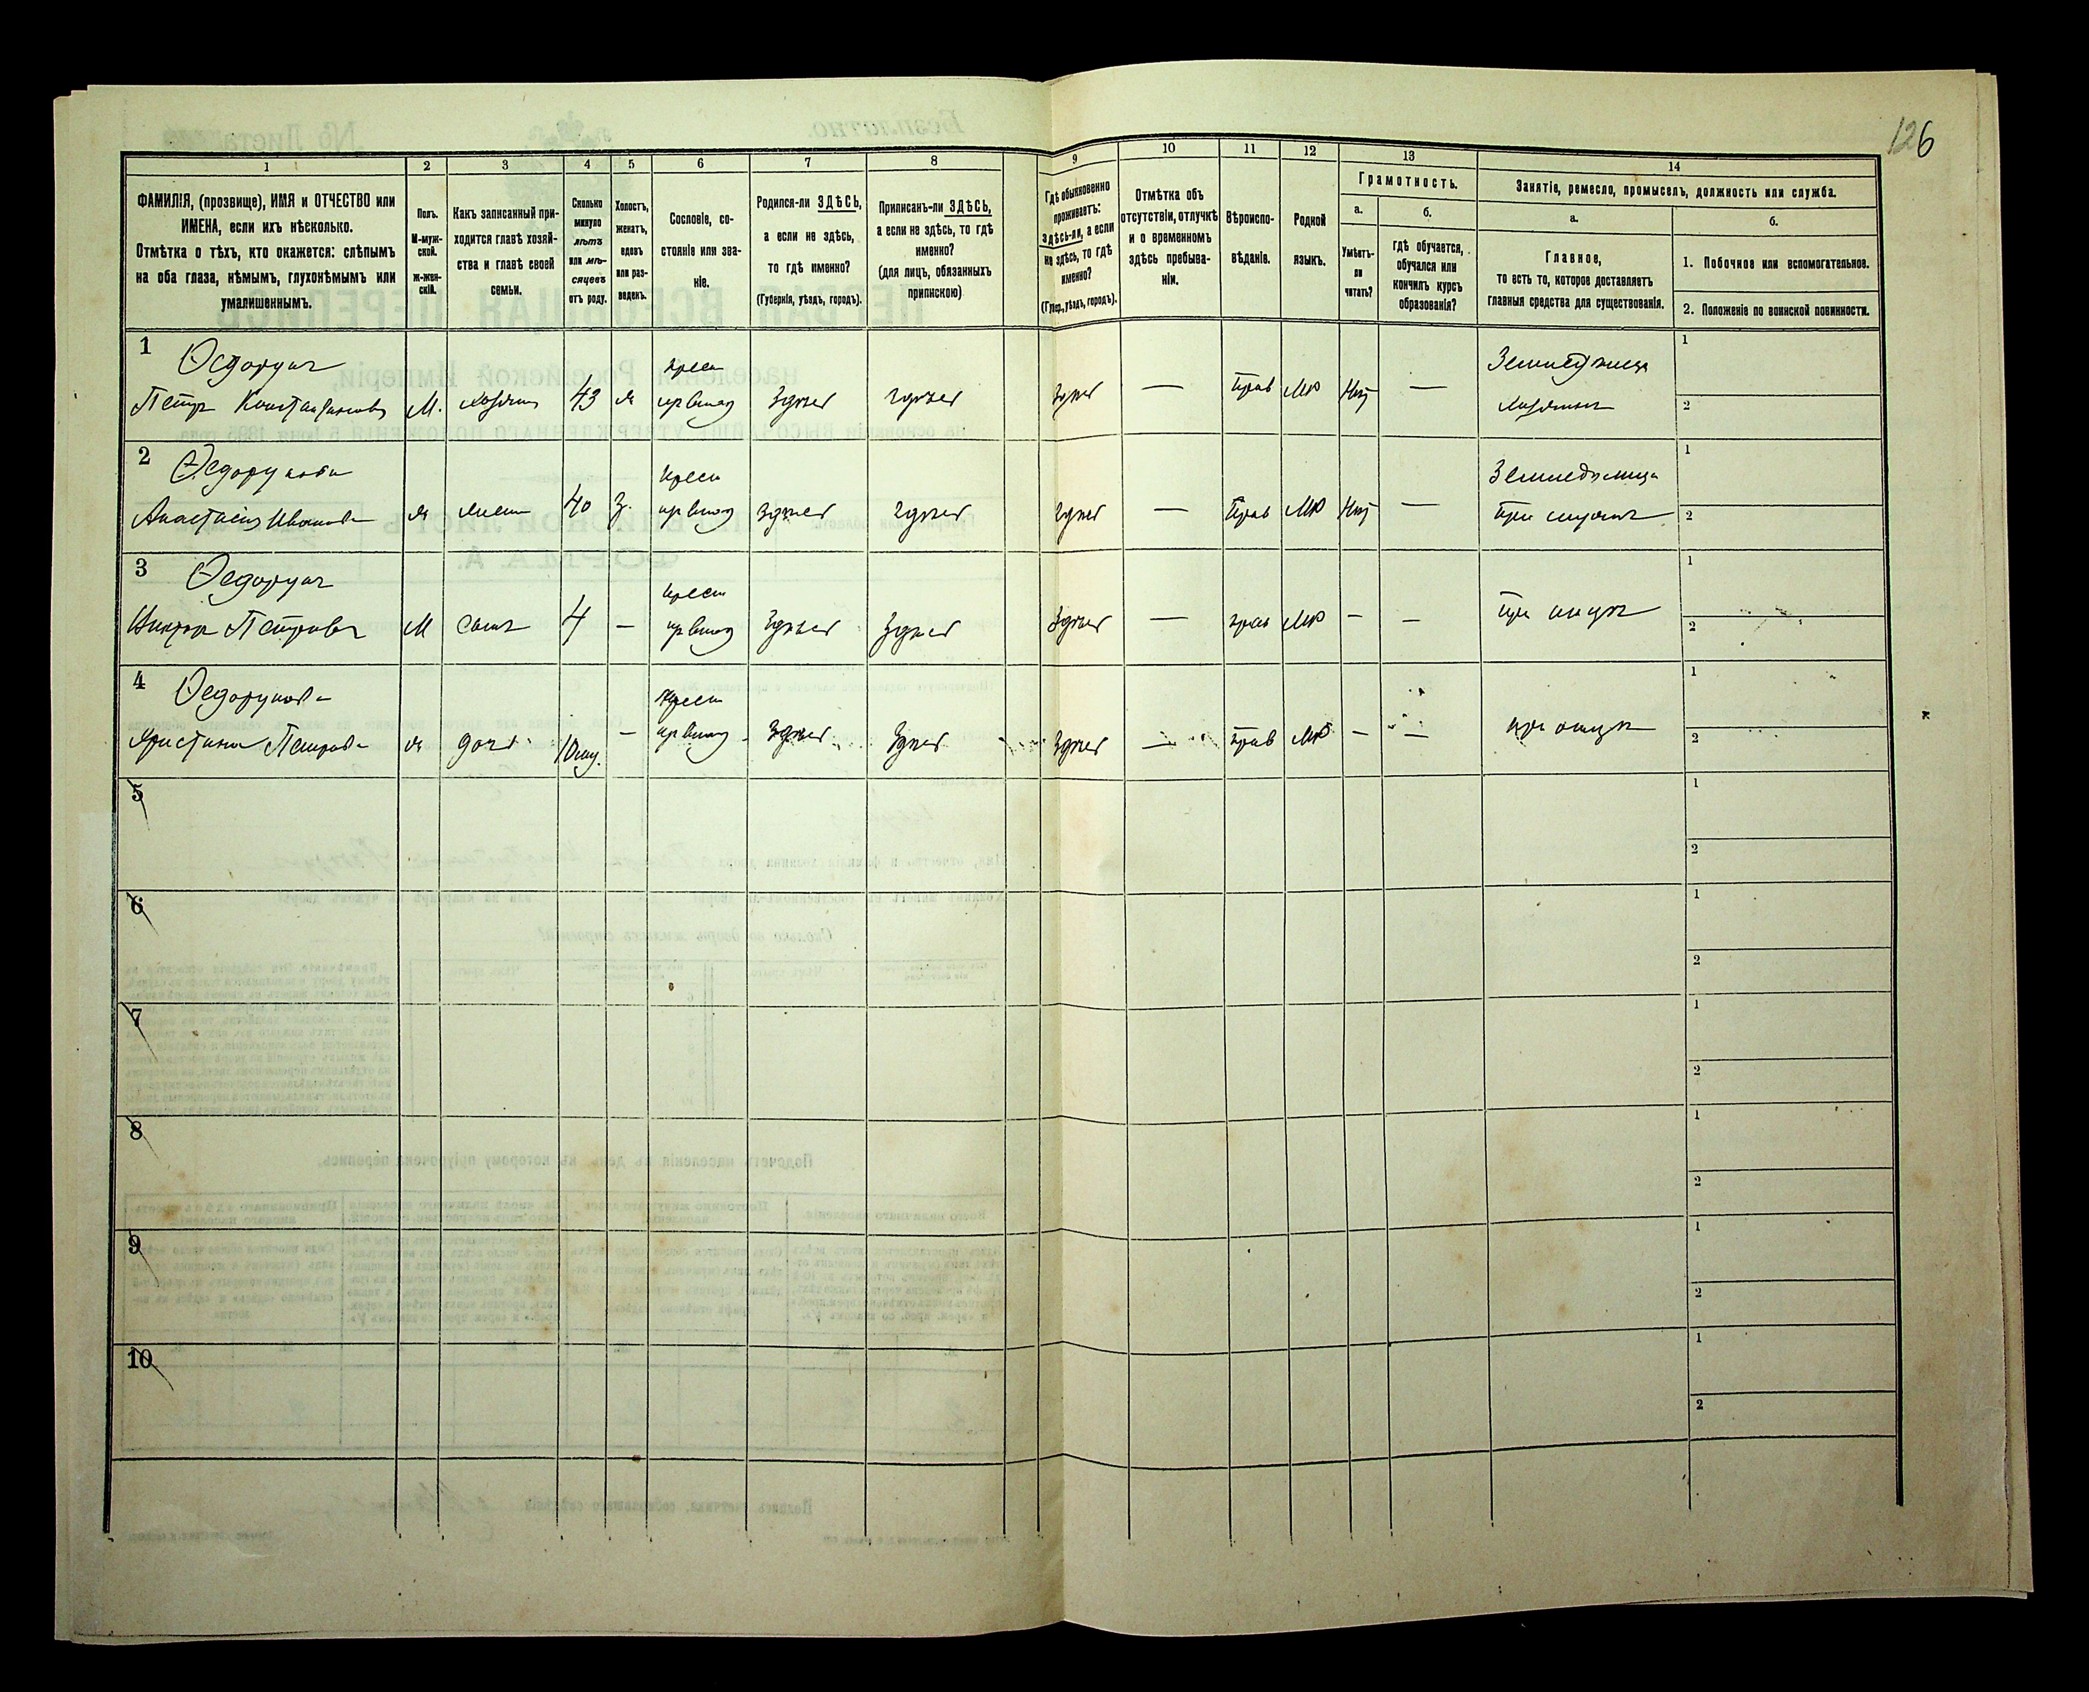 126
1
2
3
4
5
6
7
8
9
10
11
12
13
14
ФАМИЛІЯ, (прозвище), ИМЯ и ОТЧЕСТВО или
ИМЕНА, если ихъ нѣсколько.
Отмѣтка о тѣхъ, кто окажется: слѣпымъ
на оба глаза, нѣмымъ, глухонѣмымъ или
умалишеннымъ.
Полъ.
М-муж-
ской.
ж-жен-
скій.
Какъ записанный при-
ходится главѣ хозяй-
ства и главѣ своей
семьи.
Сколько
минуло
лѣтъ
или мѣ-
сяцевъ
отъ роду.
Холостъ,
женатъ,
вдовъ
или раз-
веденъ.
Сословіе, со-
стояніе или зва-
ніе.
Родился-ли ЗДѢСЬ,
а если не здѣсь,
то гдѣ именно?
(Губернія, уѣздъ, городъ).
Приписанъ-ли ЗДѢСЬ,
а если не здѣсь, то гдѣ
именно?
(для лицъ, обязанныхъ
припискою)
Гдѣ обыкновенно
проживаетъ:
здѣсь-ли, а если
не здѣсь, то гдѣ
именно?
(Губер., уѣздъ, городъ).
Отмѣтка объ
отсутствіи, отлучкѣ
и о временномъ
здѣсь пребыва-
ніи.
Вѣроиспо-
вѣданіе.
Родной
языкъ.
Грамотность.
а.
Умѣетъ-
ли
читать?
б.
гдѣ обучается,
обучался или
кончилъ курсъ
образованія?
Занятіе, ремесло, промыселъ, должность или служба.
а.
Главное,
то есть то, которое доставляетъ
главныя средства для существованія.
б.
1. Побочное или вспомогательное.
2. Положеніе по воинской повинности.
1 Ѳедорукъ Крест Земледѣлецъ 1
Петръ Константиновъ М. хозяинъ 43 ж здѣсь здѣсь здѣсь — Прав Мр — хозяинъ 2
2 Ѳедорукова Крест 1
Анастасія Иванова ж жена 40 З. здѣсь здѣсь здѣсь — Прав Мр — При мужѣ 2
3 Ѳедорукъ Крест 1
Викторъ Петровъ М сынъ 4 — здѣсь здѣсь здѣсь — прав Мр — — При отцѣ 2
4 Ѳедорукова Крест 1
Христина Петрова ж дочь — здѣсь здѣсь здѣсь — Прав Мр — — при отцѣ 2
5 1
2
6 1
2
7 1
2
8 1
2
9 1
2
10 1
2